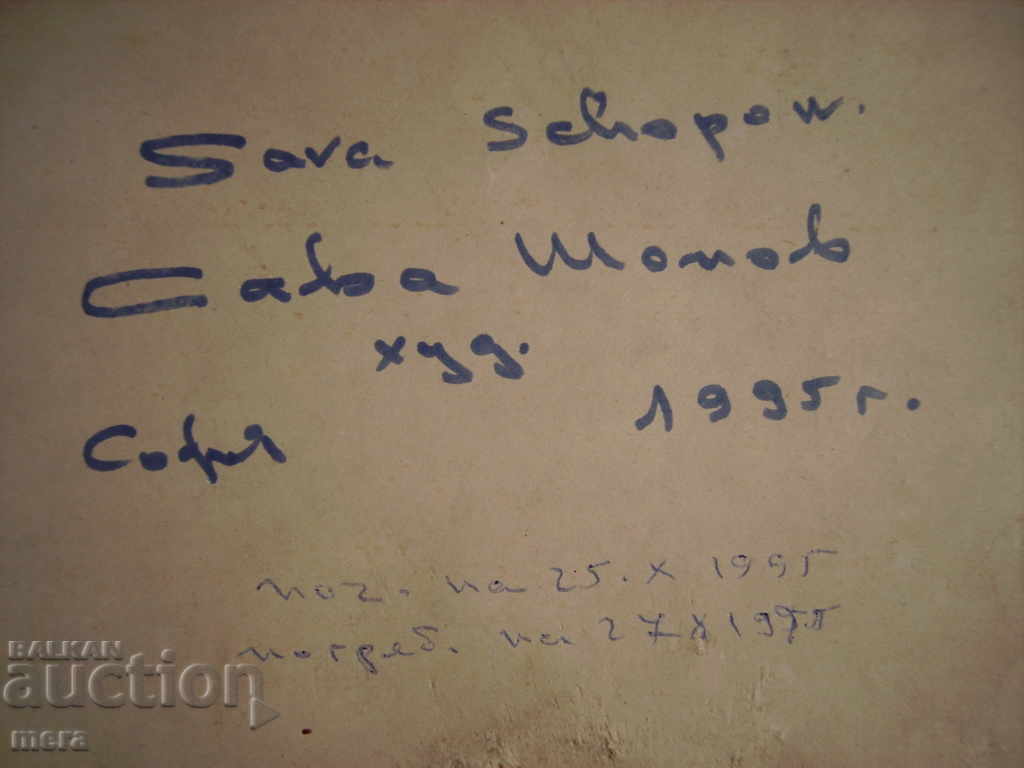 Sava Schopow.
Сава Шопов
худ.
София 1995 г.
поч. на 25. X 1995
погреб. на 27 X 1995
BALKAN
auction
mera